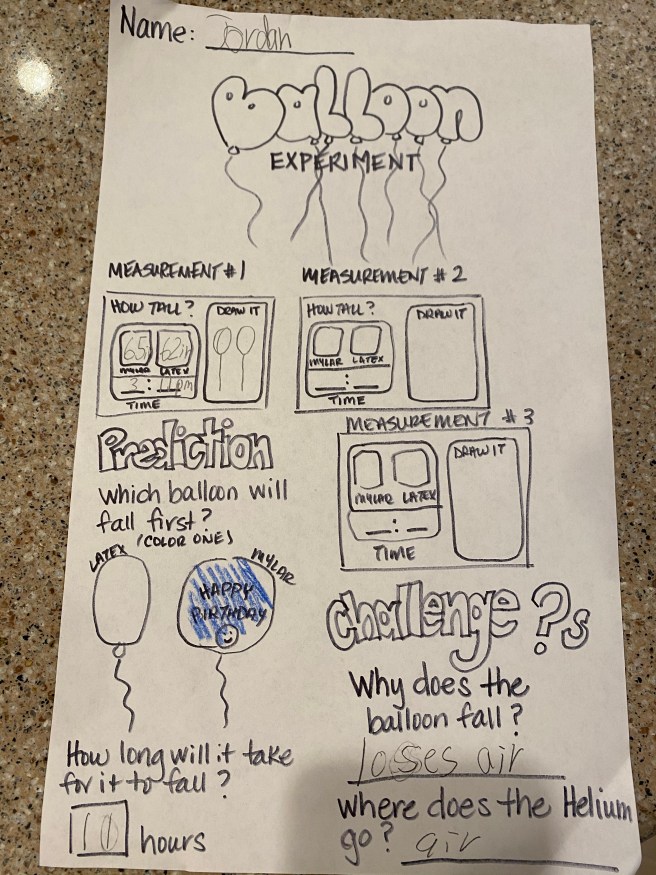 Name: Jordan
Balloon
EXPERIMENT
MEASUREMENT #1
HOW TALL?
DRAW IT
65in 62in
MYLAR LATEX
3:11pm
TIME
MEASUREMENT #2
HOW TALL?
DRAW IT
MYLAR LATEX
:
TIME
MEASUREMENT #3
DRAW IT
MYLAR LATEX
:
TIME
Prediction
which balloon will
fall first?
(COLOR ONE)
LATEX
MYLAR
HAPPY
BIRTHDAY
How long will it take
for it to fall?
10 hours
Challenge ?s
Why does the
balloon fall?
loses air
where does the Helium
go? air